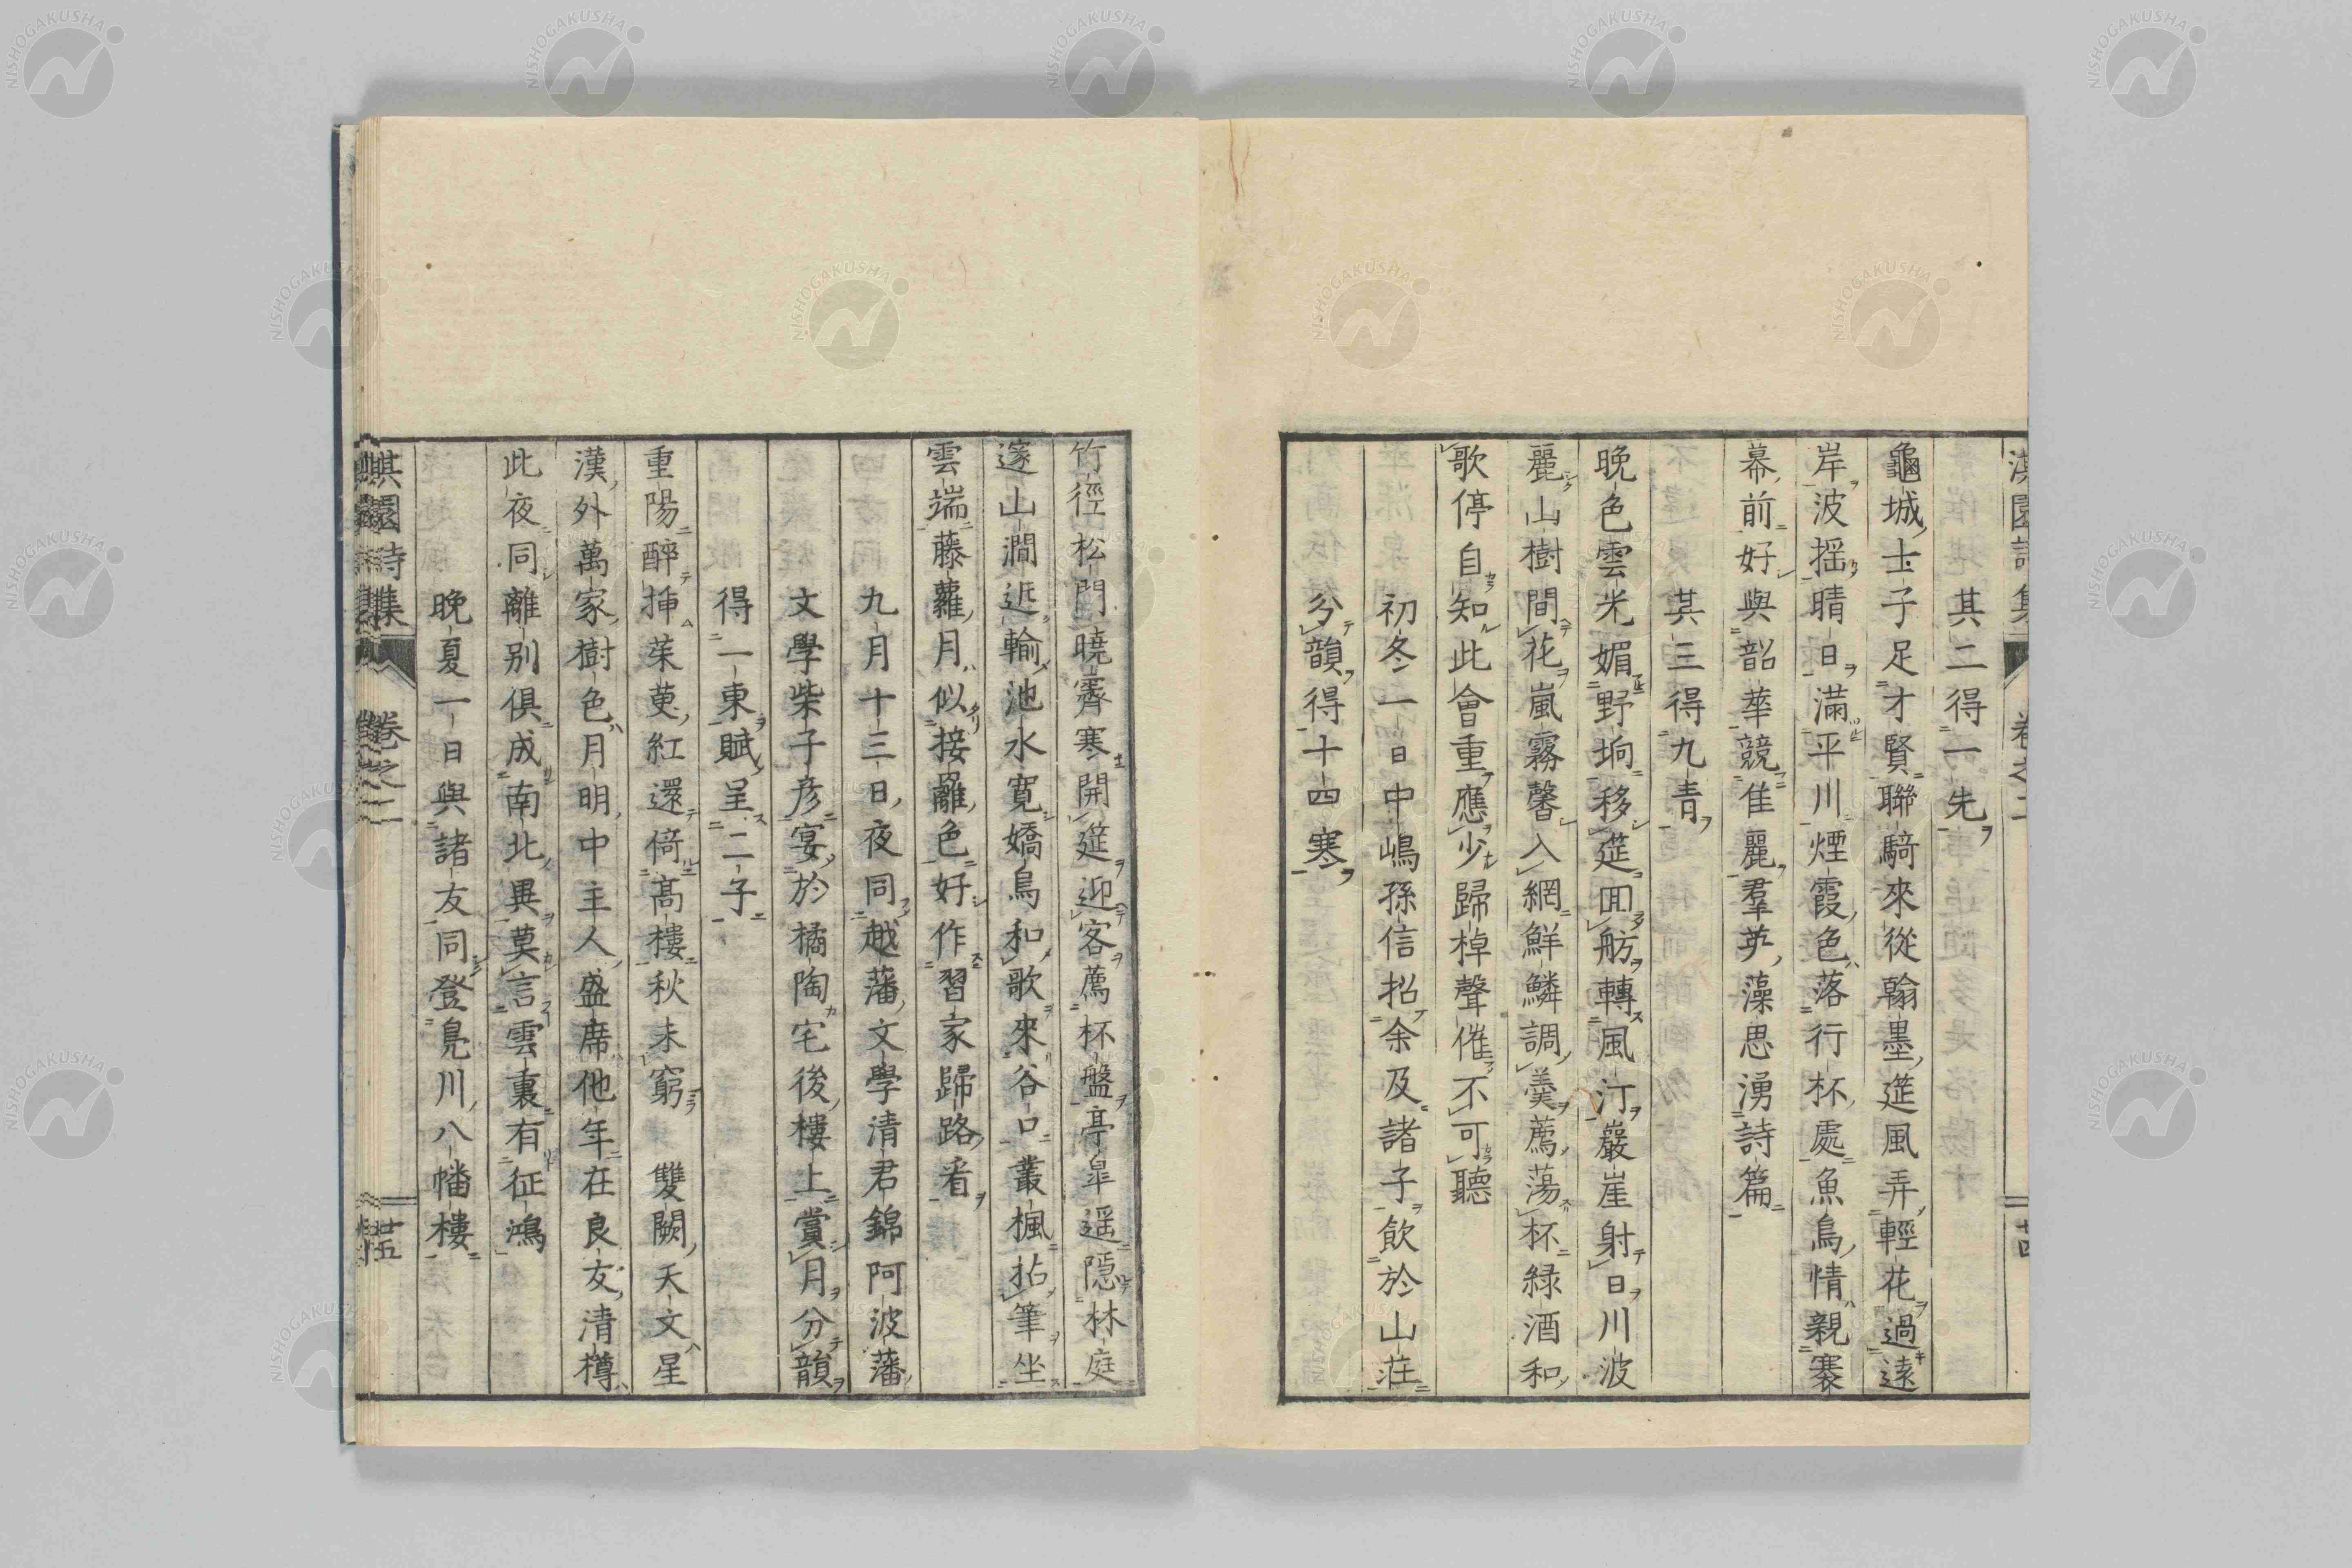 其二得一先
龜城士子足才賢聯騎來從翰墨筵風弄輕花過遠
岸波揺晴日滿平川煙霞色落行杯處魚鳥情親褰
幕前好與韶華競佳麗羣英藻思湧詩篇
其三得九青
晚色雲光媚野坰移筵囬舫轉風汀巖崖射日川波
麗山樹間花嵐霧馨入網鮮鱗調羹薦蕩杯緑酒和
歌停自知此會重應少歸棹聲催不可聽
初冬一日中嶋孫信招余及諸子飲於山莊
分韻得十四寒
竹徑松門曉霽寒開筵迎客薦杯盤亭皐遥隠林庭
邃山澗近輸池水寛嬌鳥和歌來谷口叢楓拈筆坐
雲端藤蘿月似接䍦色好作習家歸路看
九月十三日夜同越藩文學清君錦阿波藩
文學柴子彦宴於橘陶宅後樓上賞月分韻
得一東賦呈二子
重陽醉揷茱萸紅還倚髙樓秋未窮雙闕天文星
漢外萬家樹色月明中主人盛席他年在良友清樽
此夜同離別俱成南北異莫言雲裏有征鴻
晚夏一日與諸友同登鳬川八幡樓
淇園詩集 卷之二 廿五